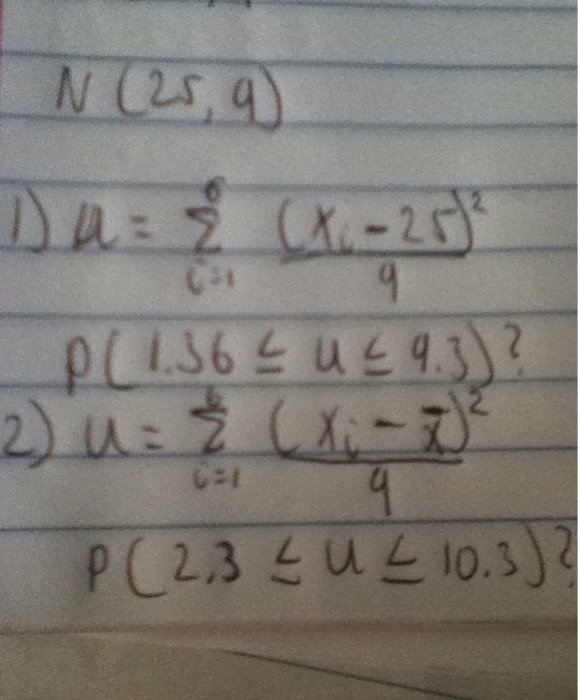 N (25, 9)
1) u = 6 Σ i=1 (xi - 25)² / 9
P(1.36 ≤ u ≤ 9.3)?
2) u = 6 Σ i=1 (xi - x̄)² / 9
P(2.3 ≤ u ≤ 10.3)?